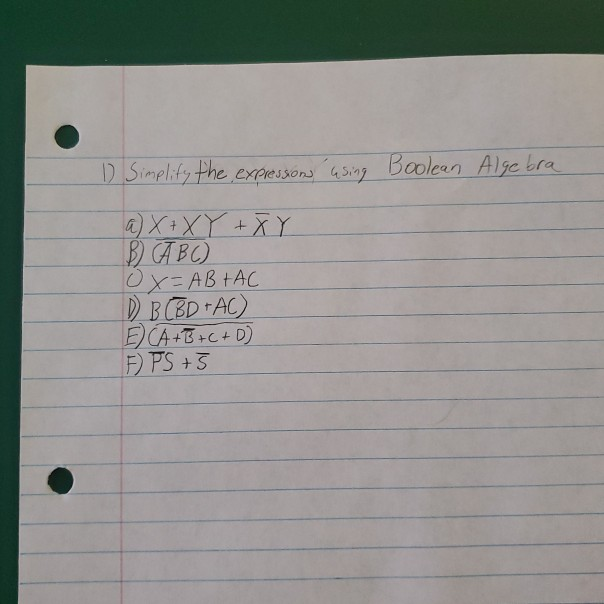 1) Simplify the expressions using Boolean Algebra
a) X + XY + X̅Y
B) (̅A̅̅B̅C̅)̅
C) X = AB + AC
D) B(B̅D + AC)
E) (̅A̅+̅B̅̅+̅C̅+̅D̅)̅
F) P̅S + S̅